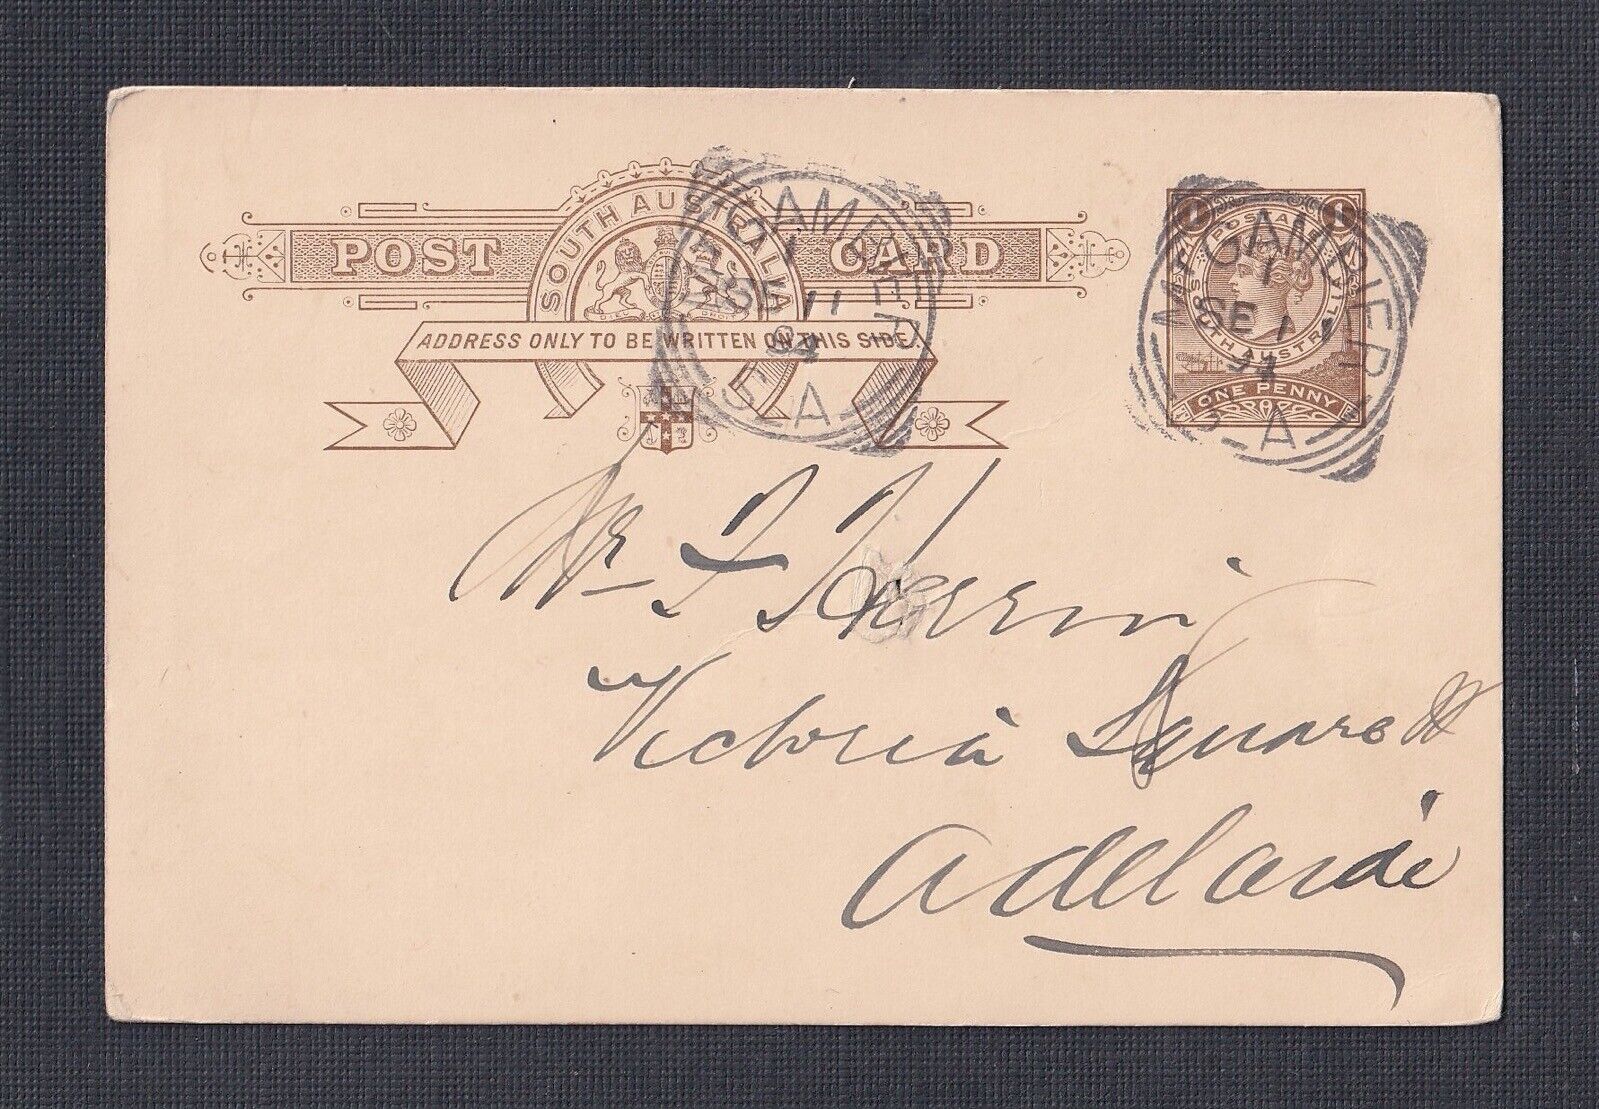 POST CARD
SOUTH AUSTRALIA
ADDRESS ONLY TO BE WRITTEN ON THIS SIDE.
1 1
POSTAGE
SOUTH AUSTRALIA
ONE PENNY
Mt GAMBIER
1
SE 11
94
S-A
GAMBIER
1
11
94
S-A
Mr
Victoria Square W
Adelaide